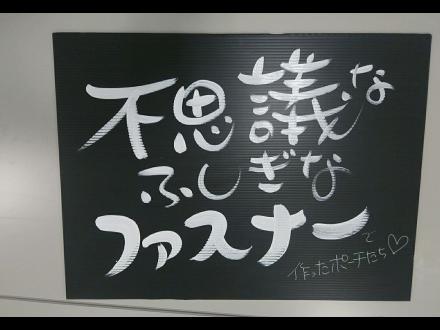 不思議な
ふしぎな
ファスナーで
作ったポーチたち♡